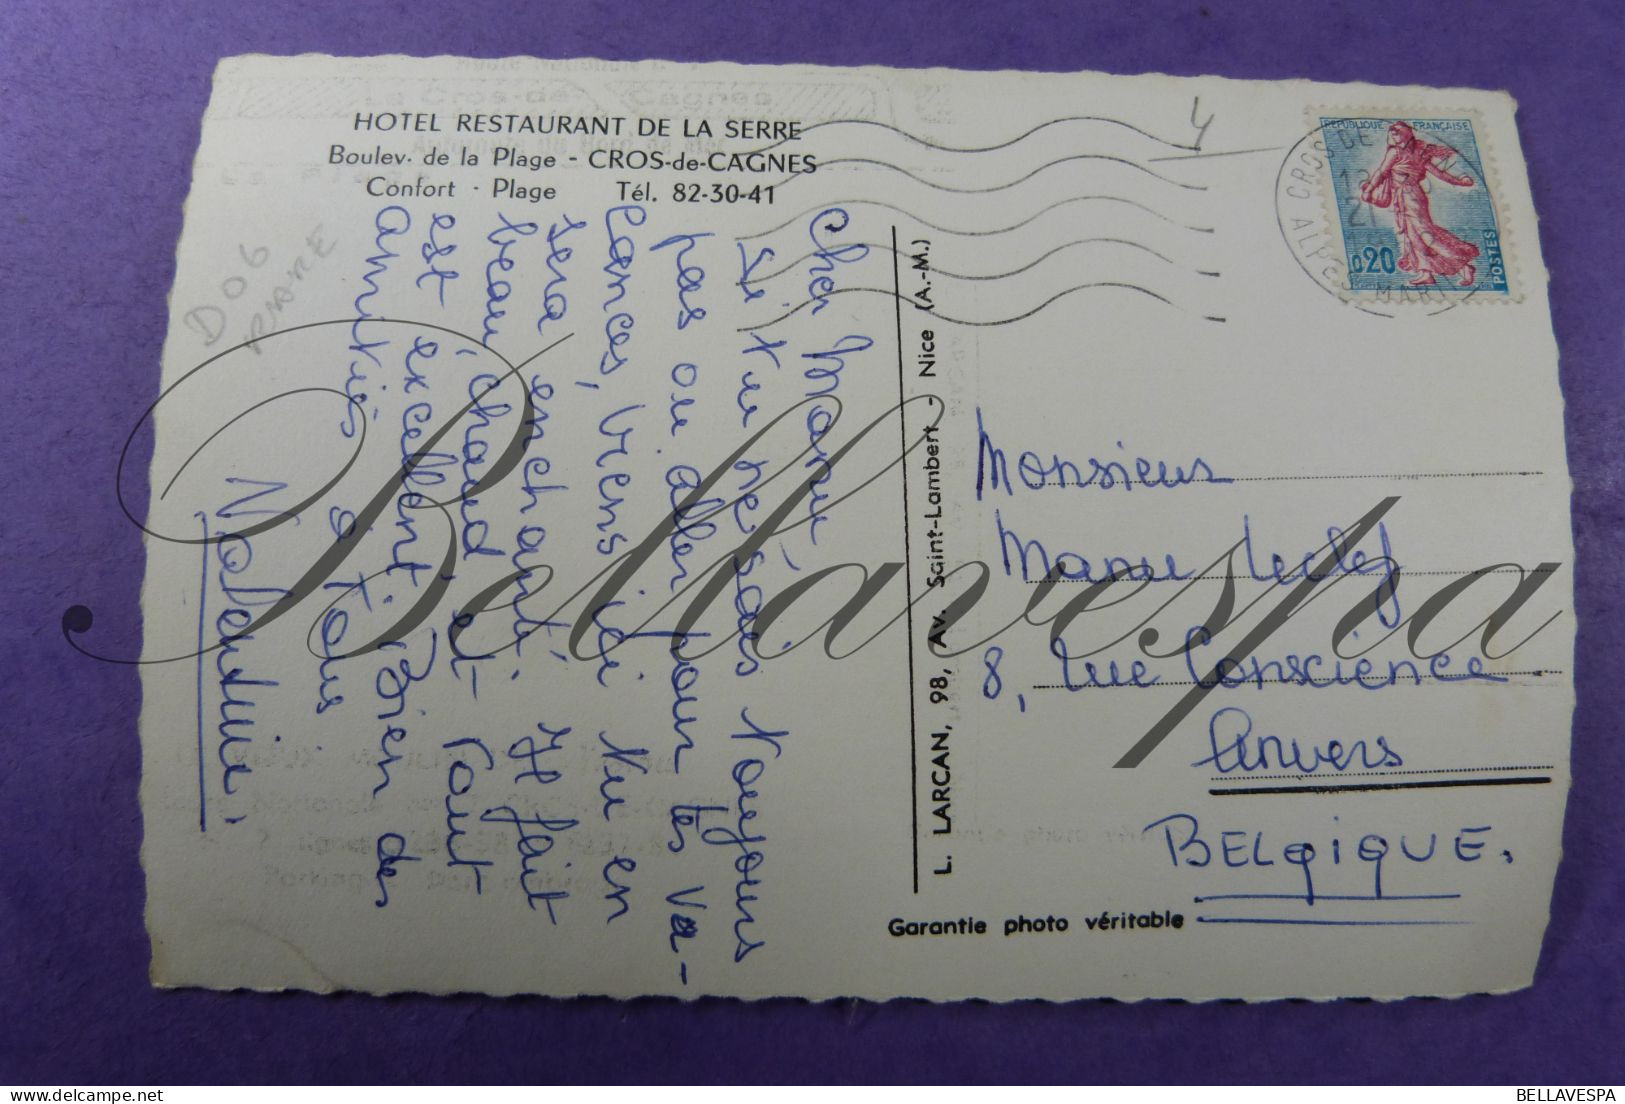 HOTEL RESTAURANT DE LA SERRE
Boulev. de la Plage - CROS-de-CAGNES
Confort - Plage Tél. 82-30-41
D06
RARE
4
REPUBLIQUE FRANÇAISE
0,20
POSTES
Cher Manu,
Si tu ne sais toujours
pas où aller pour tes va-
cances, viens ici tu en
sera enchanté. Il fait
beau, chaud, et tout
est excellent. Bien des
amitiés à tous
L. LARCAN, 98, Av. Saint-Lambert - Nice (A.-M.)
Monsieur
Manu Leclef
8, rue Conscience
Anvers
BELGIQUE.
Garantie photo véritable
Bellavespa
BELLAVESPA